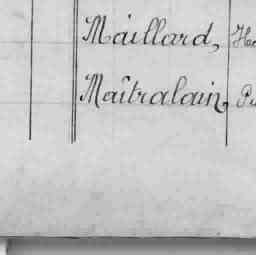 Maillard,
Maîtralain,